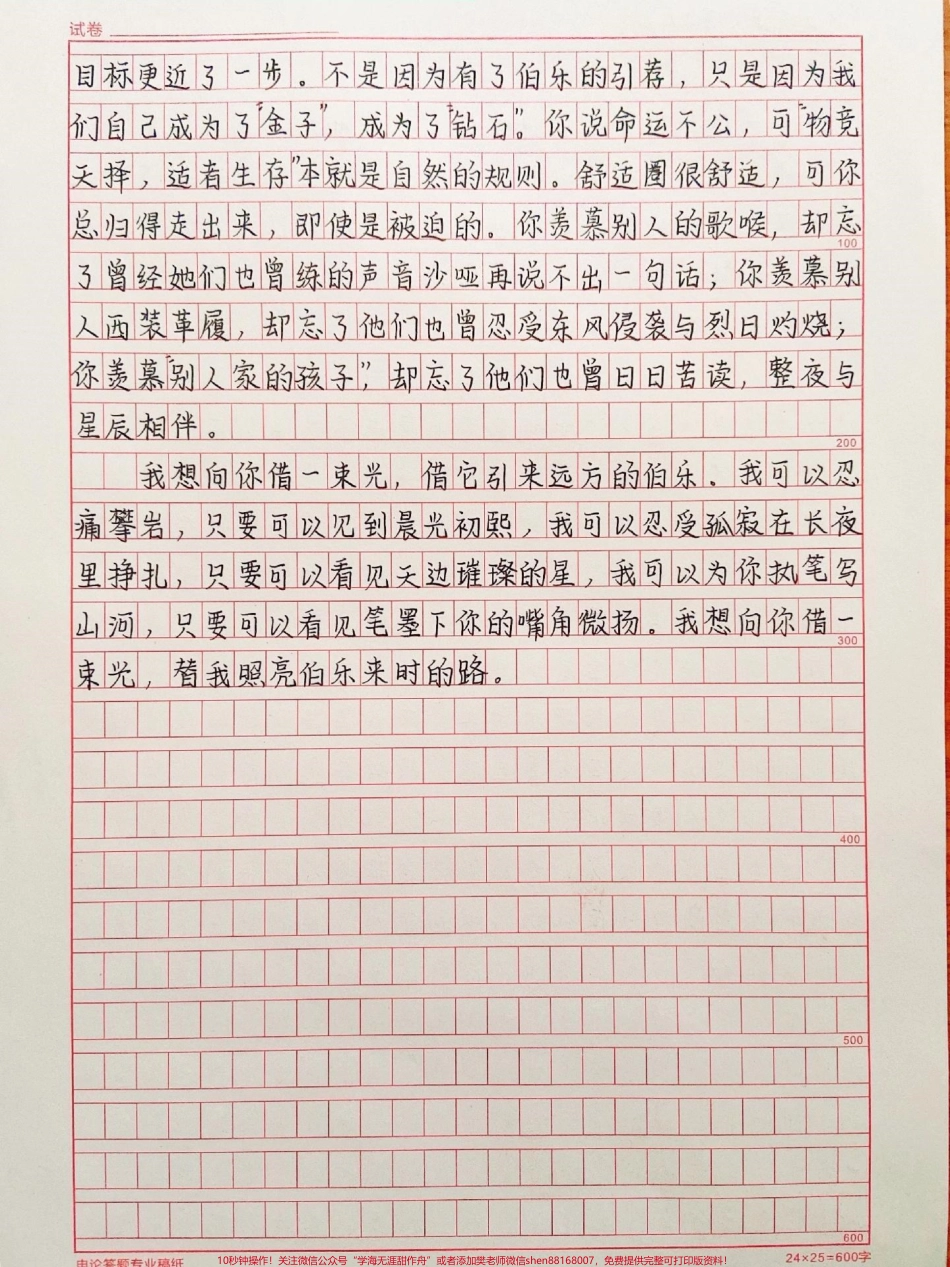 试卷
目标更近了一步。不是因为有了伯乐的引荐，只是因为我
们自己成为了“金子”，成为了“钻石”。你说命运不公，可“物竞
天择，适者生存”本就是自然的规则。舒适圈很舒适，可你
总归得走出来，即使是被迫的。你羡慕别人的歌喉，却忘
100
了曾经她们也曾练的声音沙哑再说不出一句话；你羡慕别
人西装革履，却忘了他们也曾忍受东风侵袭与烈日灼烧；
你羡慕“别人家的孩子”，却忘了他们也曾日日苦读，整夜与
星辰相伴。
200
我想向你借一束光，借它引来远方的伯乐。我可以忍
痛攀岩，只要可以见到晨光初熙，我可以忍受孤寂在长夜
里挣扎，只要可以看见天边璀璨的星，我可以为你执笔写
山河，只要可以看见笔墨下你的嘴角微扬。我想向你借一
300
束光，替我照亮伯乐来时的路。
400
500
600
申论答题专业稿纸
10秒钟操作！关注微信公众号“学海无涯甜作舟”或者添加樊老师微信shen88168007，免费提供完整可打印版资料！
24×25=600字